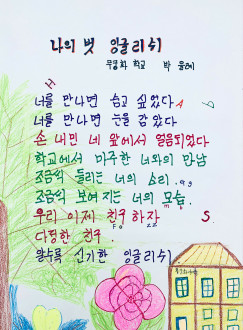 나의 벗 잉글리쉬
무궁화 학교 박 을례
H
너를 만나면 숨고 싶었다 A
너를 만나면 눈을 감았다
손 내민 네 앞에서 얼음되었다
학교에서 마주한 너와의 만남
조금씩 들리는 너의 소리
조금씩 보여지는 너의 모습
우리 이제 친구하자 S
다정한 친구.
알수록 신기한 잉글리쉬